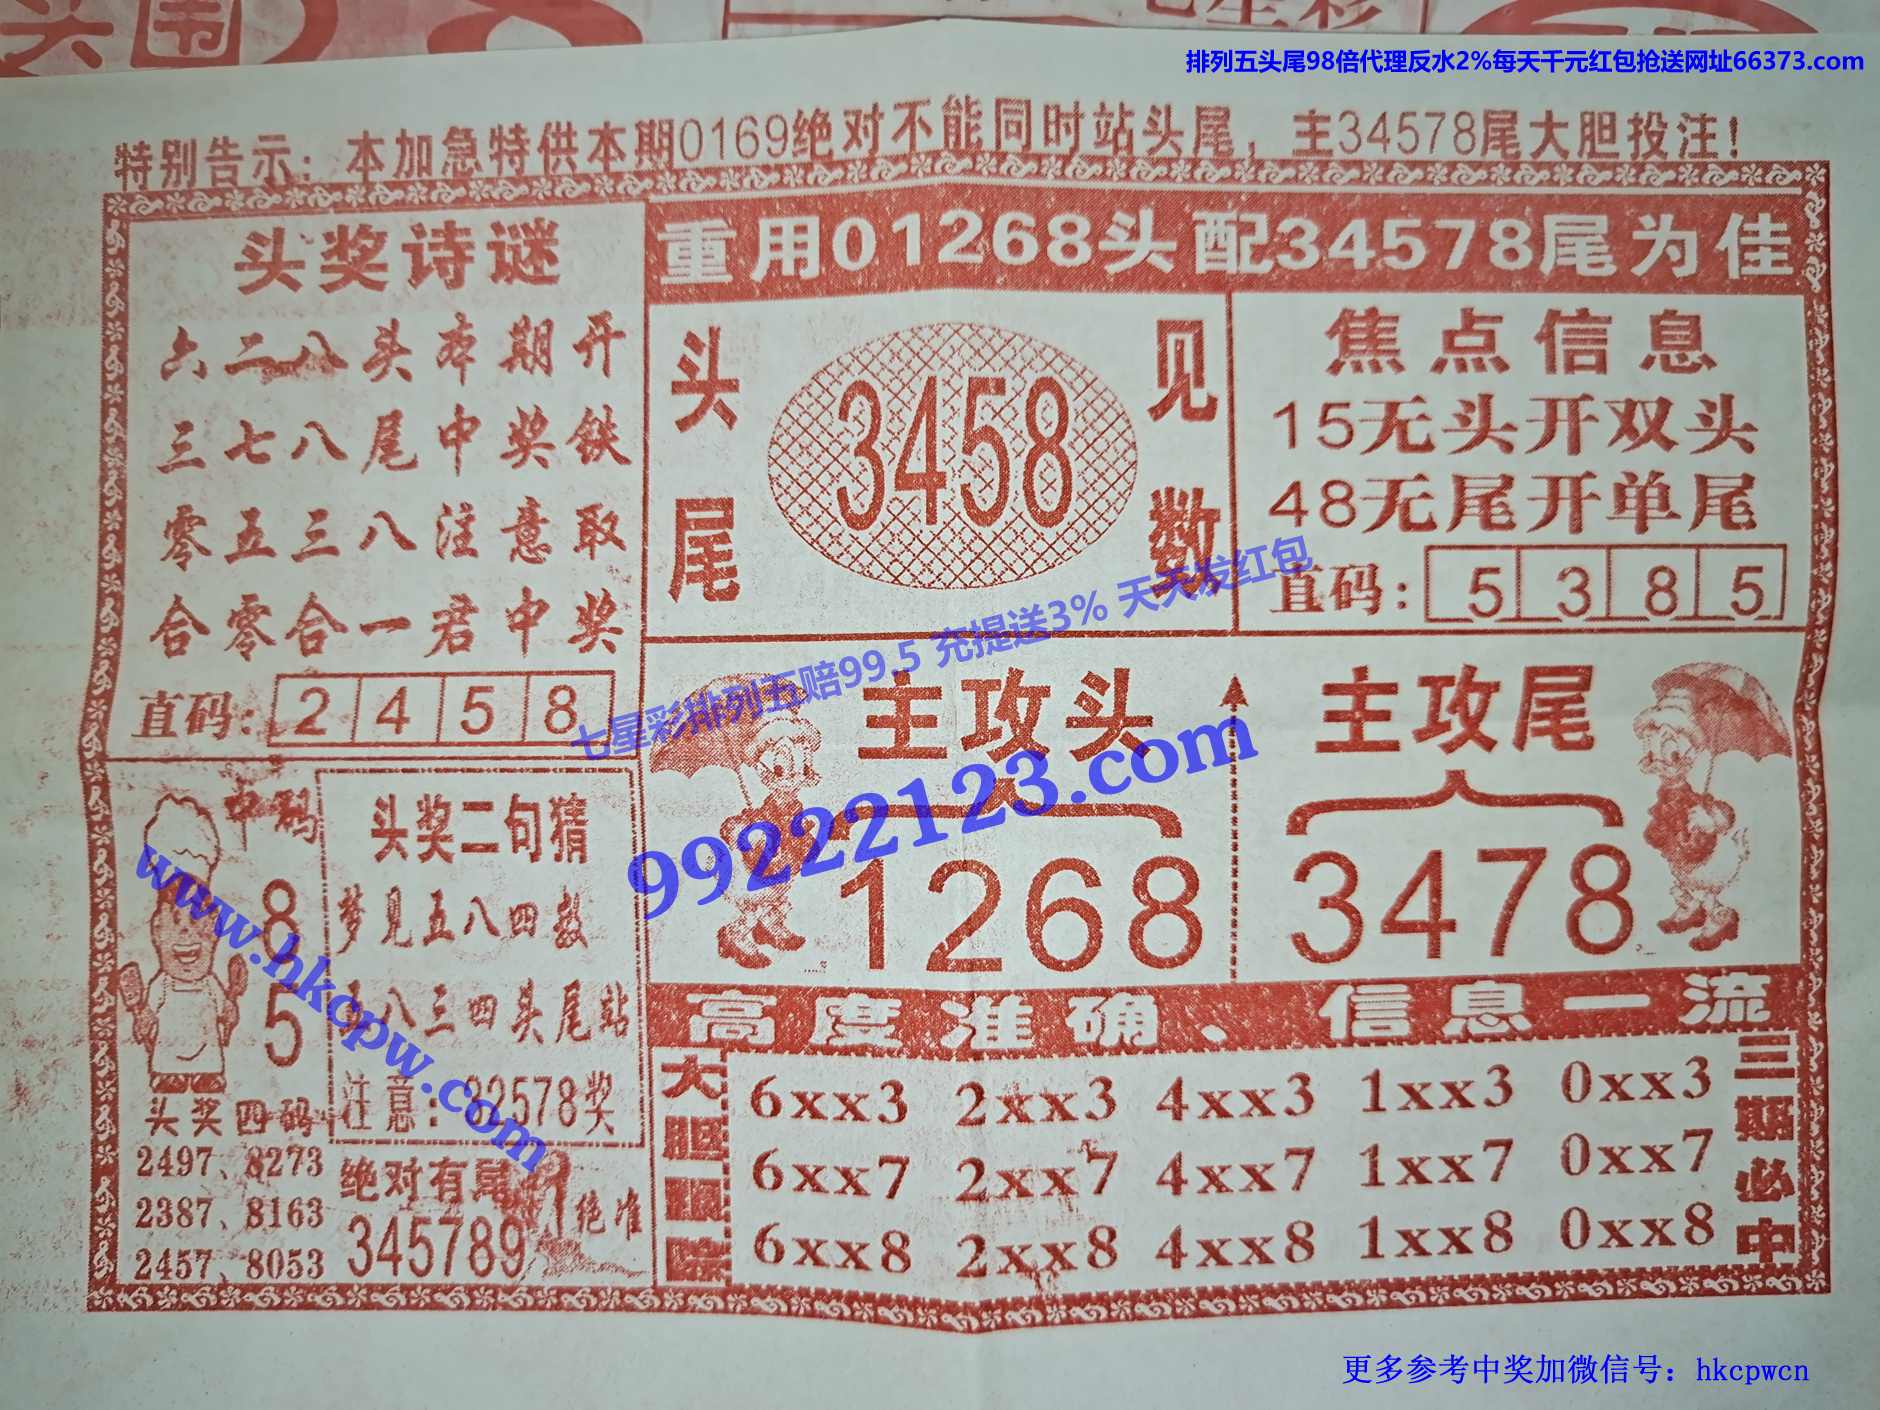 排列五头尾98倍代理反水2%每天千元红包抢送网址66373.com
特别告示：本加急特供本期0169绝对不能同时站头尾，主34578尾大胆投注！
头奖诗谜
六二八头本期开
三七八尾中奖铁
零五三八注意取
合零合一君中奖
直码：2458
重用01268头配34578尾为佳
头尾
3458
见数
焦点信息
15无头开双头
48无尾开单尾
直码：5385
七星彩排列五赔99.5 充提送3% 天天发红包
99222123.com
主攻头
1268
主攻尾
3478
中码
8
5
www.hkcpw.com
头奖四码
2497、8273
2387、8163
2457、8053
头奖二句猜
梦见五八四数
八三四头尾站
注意：32578奖
绝对有尾
345789
绝准
高度准确、信息一流
大胆跟踪
6xx3 2xx3 4xx3 1xx3 0xx3
6xx7 2xx7 4xx7 1xx7 0xx7
6xx8 2xx8 4xx8 1xx8 0xx8
三期必中
更多参考中奖加微信号：hkcpwcn